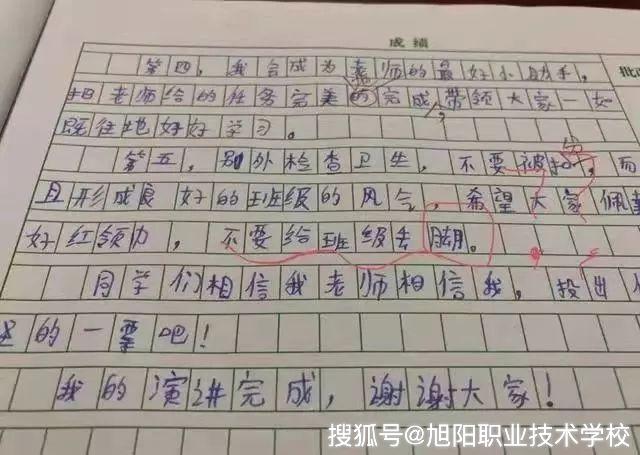 成绩
批
第四，我会成为老师的最好小助手，
把老师给的任务完美的完成，带领大家一如
既往地好好学习。
第五，另外检查卫生，不要被扣分，而
且形成良好的班级的风气，希望大家佩
好红领巾，不要给班级丢脚。
同学们相信我老师相信我，投出
的一票吧！
我的演讲完成，谢谢大家！
搜狐号@旭阳职业技术学校